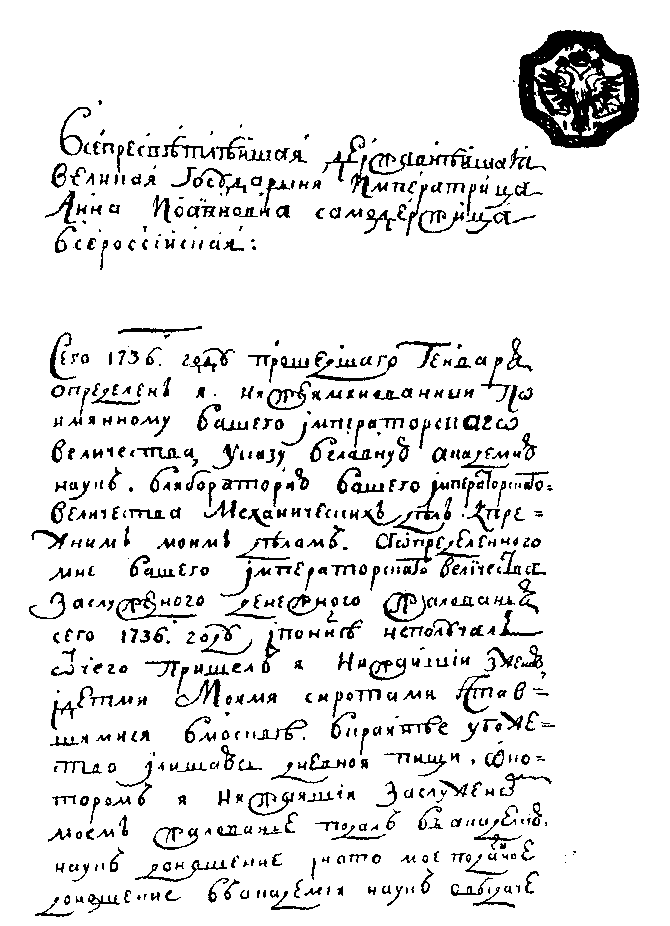 Всепресветлѣйшая державнѣйшая
великая Государыня Императрица
Анна Иоанновна самодержица
всероссійская:
Сего 1736. году прошедшаго Генваря
определенъ я. нижеимянованный по
имянному вашего імператорскаго
величества, указу вглавную академию
наукъ. влабораторию вашего імператорскаго
величества Механическихъ дѣлъ. кпре=
жнимъ моимъ дѣламъ. аопределенного
мне вашего імператорскаго величества
Заслуженого денежного жалованья
сего 1736. году іпонынѣ неполучалъ
отчего пришелъ я нижайшіи зженою
ідетми Моими сиротами
шимися вмосквѣ. вкрайнее убоже=
ство ілишався дневнои пищи, око=
торомъ я нижайшіи Заслуженомъ
моемъ жалованье подалъ въакадемию.
наукъ доношение інато мое поданое
доношение въакадемии наукъ